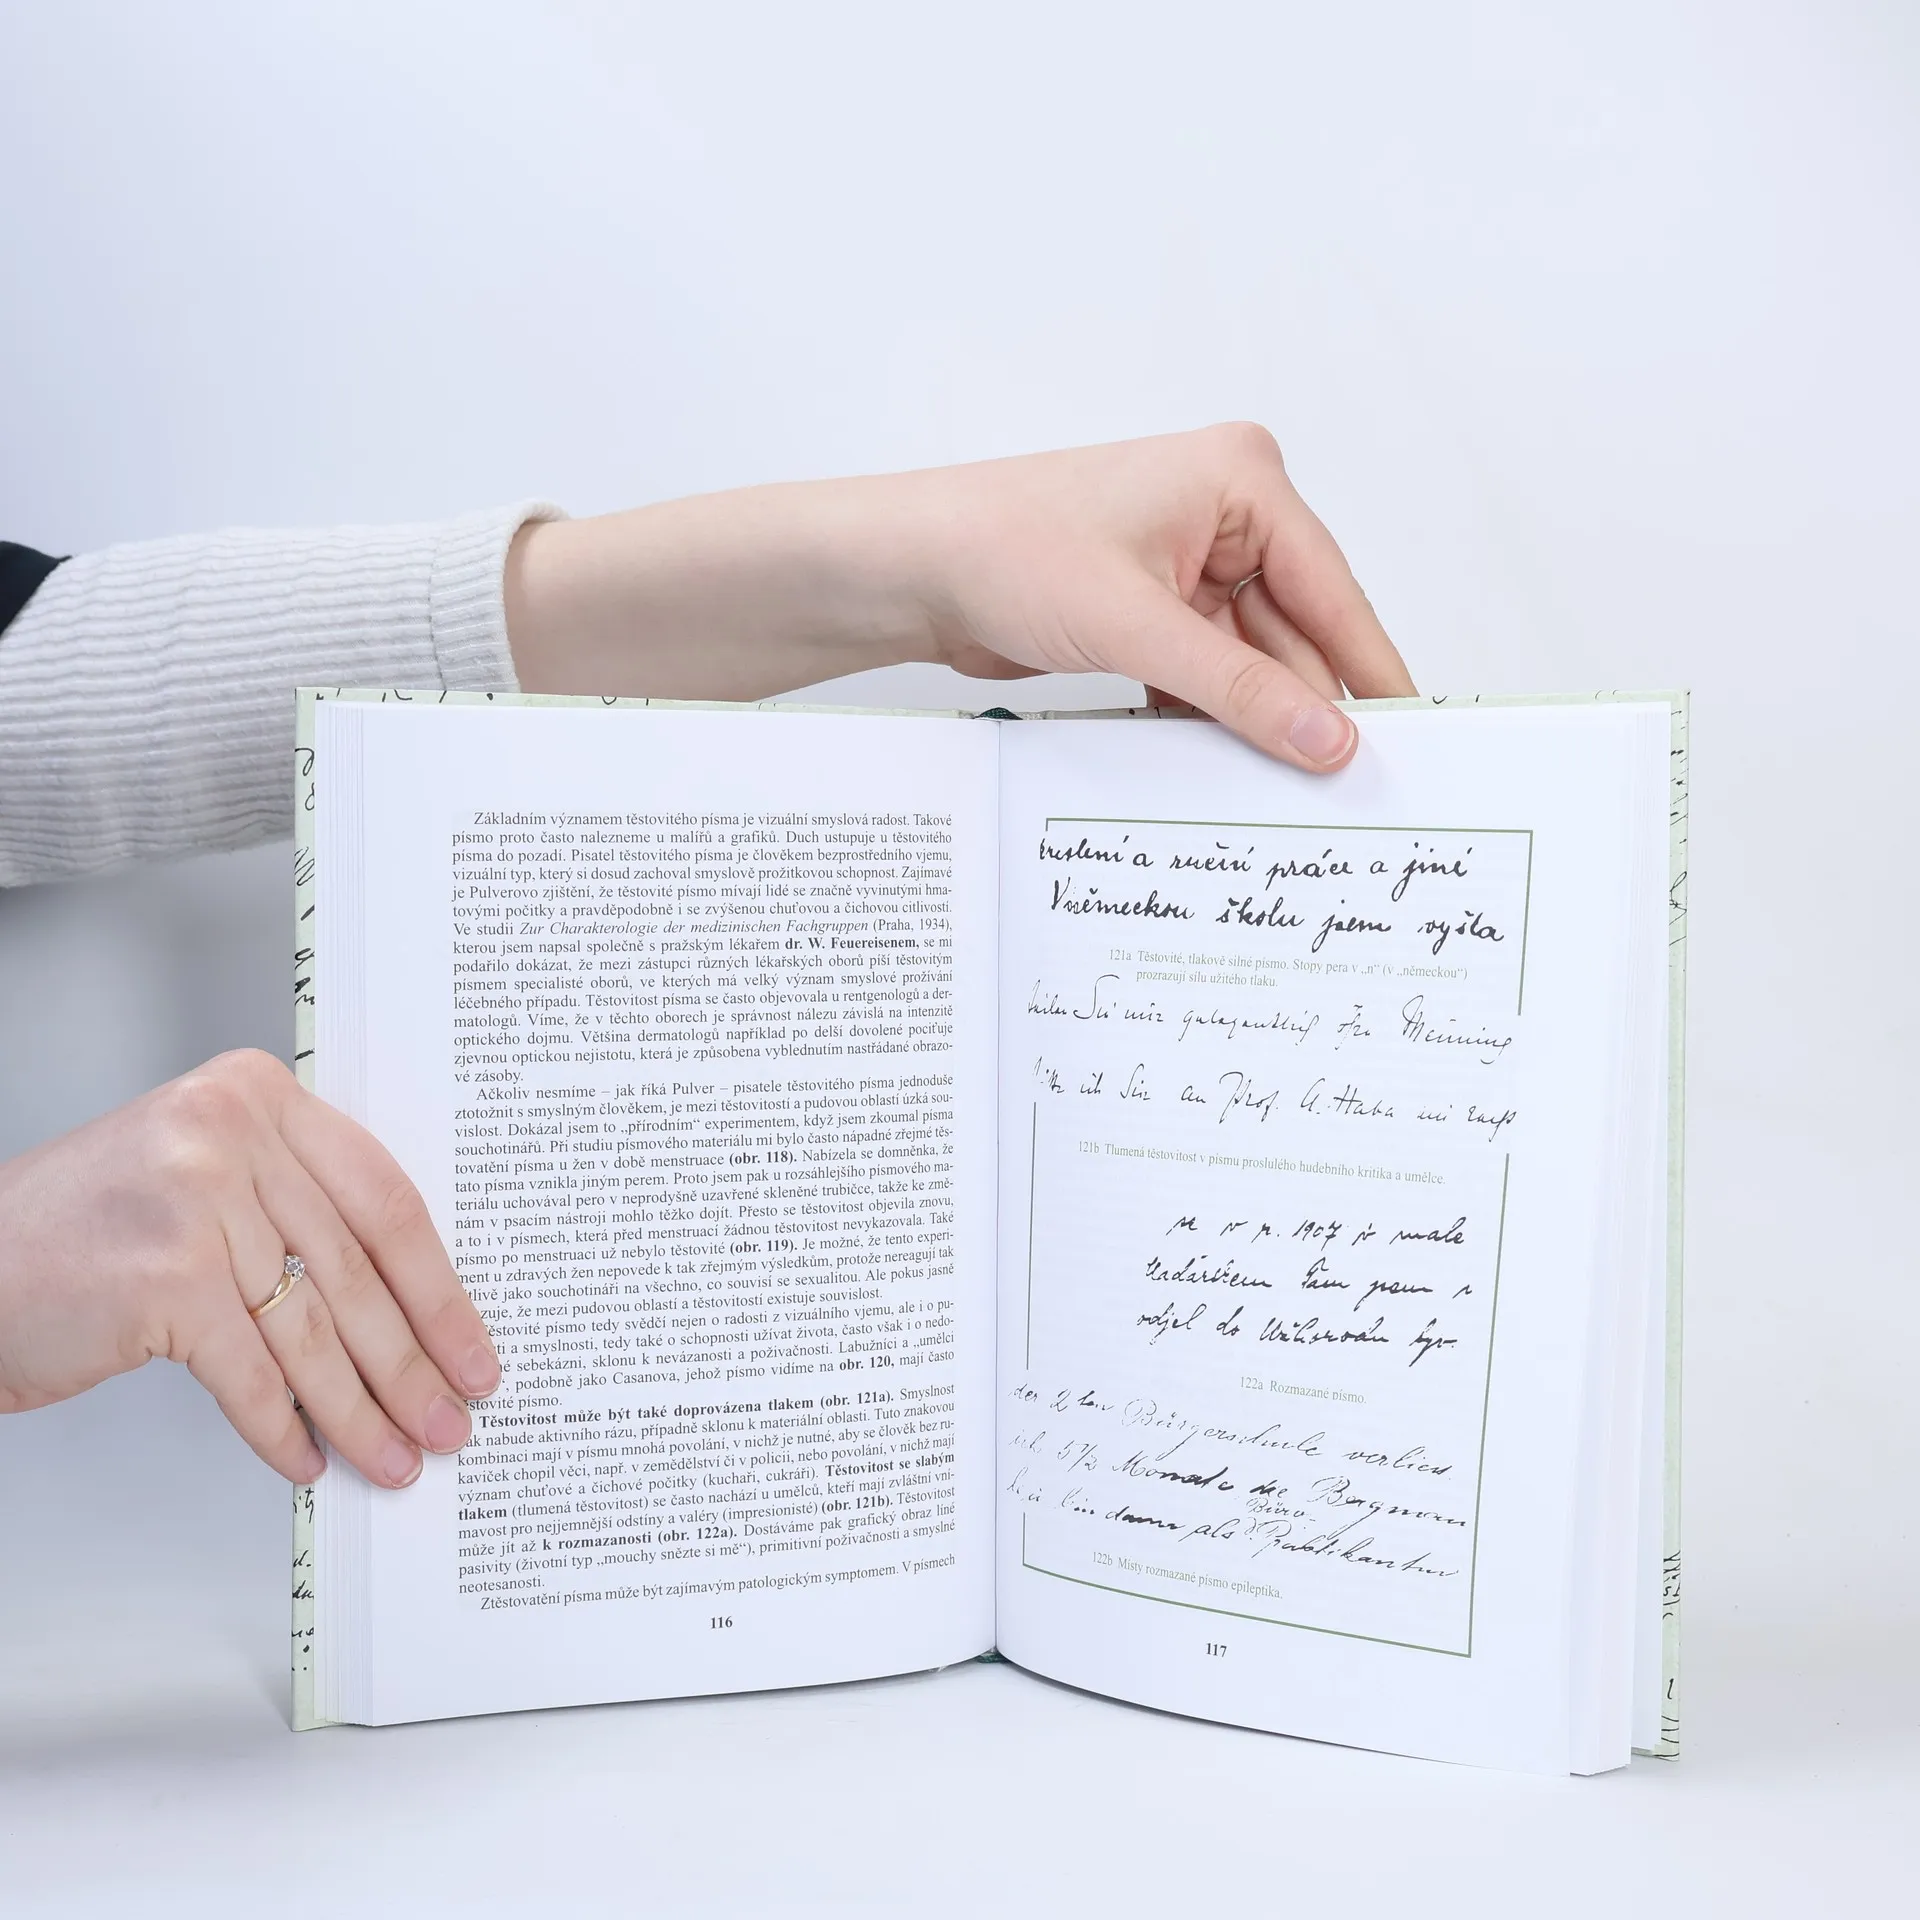 Základním významem těstovitého písma je vizuální smyslová radost. Takové
písmo proto často nalezneme u malířů a grafiků. Duch ustupuje u těstovitého
písma do pozadí. Pisatel těstovitého písma je člověkem bezprostředního vjemu,
vizuální typ, který si dosud zachoval smyslově prožitkovou schopnost. Zajímavé
je Pulverovo zjištění, že těstovité písmo mívají lidé se značně vyvinutými hma-
tovými počitky a pravděpodobně i se zvýšenou chuťovou a čichovou citlivostí.
Ve studii Zur Charakterologie der medizinischen Fachgruppen (Praha, 1934),
kterou jsem napsal společně s pražským lékařem dr. W. Feuereisenem, se mi
podařilo dokázat, že mezi zástupci různých lékařských oborů píší těstovitým
písmem specialisté oborů, ve kterých má velký význam smyslové prožívání
léčebného případu. Těstovitost písma se často objevovala u rentgenologů a der-
matologů. Víme, že v těchto oborech je správnost nálezu závislá na intenzitě
optického dojmu. Většina dermatologů například po delší dovolené pociťuje
zjevnou optickou nejistotu, která je způsobena vyblednutím nastřádané obrazo-
vé zásoby.
Ačkoliv nesmíme – jak říká Pulver – pisatele těstovitého písma jednoduše
ztotožnit s smyslným člověkem, je mezi těstovitostí a pudovou oblastí úzká sou-
vislost. Dokázal jsem to „přírodním“ experimentem, když jsem zkoumal písma
souchotinářů. Při studiu písmového materiálu mi bylo často nápadné zřejmé těs-
tovatění písma u žen v době menstruace (obr. 118). Nabízela se domněnka, že
tato písma vznikla jiným perem. Proto jsem pak u rozsáhlejšího písmového ma-
teriálu uchovával pero v neprodyšně uzavřené skleněné trubičce, takže ke změ-
nám v psacím nástroji mohlo těžko dojít. Přesto se těstovitost objevila znovu,
a to i v písmech, která před menstruací žádnou těstovitost nevykazovala. Také
písmo po menstruaci už nebylo těstovité (obr. 119). Je možné, že tento experi-
ment u zdravých žen nepovede k tak zřejmým výsledkům, protože nereagují tak
jako souchotináři na všechno, co souvisí se sexualitou. Ale pokus jasně
že mezi pudovou oblastí a těstovitostí existuje souvislost.
Těstovité písmo tedy svědčí nejen o radosti z vizuálního vjemu, ale i o pu-
a smyslnosti, tedy také o schopnosti užívat života, často však i o nedo-
sebekázni, sklonu k nevázanosti a poživačnosti. Labužníci a „umělci
podobně jako Casanova, jehož písmo vidíme na obr. 120, mají často
těstovité písmo.
Těstovitost může být také doprovázena tlakem (obr. 121a). Smyslnost
pak nabude aktivního rázu, případně sklonu k materiální oblasti. Tuto znakovou
kombinaci mají v písmu mnohá povolání, v nichž je nutné, aby se člověk bez ru-
kaviček chopil věci, např. v zemědělství či v policii, nebo povolání, v nichž mají
význam chuťové a čichové počitky (kuchaři, cukráři). Těstovitost se slabým
tlakem (tlumená těstovitost) se často nachází u umělců, kteří mají zvláštní vní-
mavost pro nejjemnější odstíny a valéry (impresionisté) (obr. 121b). Těstovitost
může jít až k rozmazanosti (obr. 122a). Dostáváme pak grafický obraz líné
pasivity (životní typ „mouchy snězte si mě“), primitivní poživačnosti a smyslné
neotesanosti.
Ztěstovatění písma může být zajímavým patologickým symptomem. V písmech
116
kreslení a ruční práce a jiné
V německou školu jsem vyšla
121a Těstovité, tlakově silné písmo. Stopy pera v „n“ (v „německou“)
prozrazují sílu užitého tlaku.
Sie mir gelegentlich Ihre Meinung
ich Sie an Prof. A. Haba
121b Tlumená těstovitost v písmu proslulého hudebního kritika a umělce.
se v r. 1907 v male
Tam jsem
odjel do Užhorodu
122a Rozmazané písmo.
der 2 ten Bürgerschule verliess.
ich 5 1/2 Monate Bergmann
Büro-
bin dann als Praktikant
122b Místy rozmazané písmo epileptika.
117